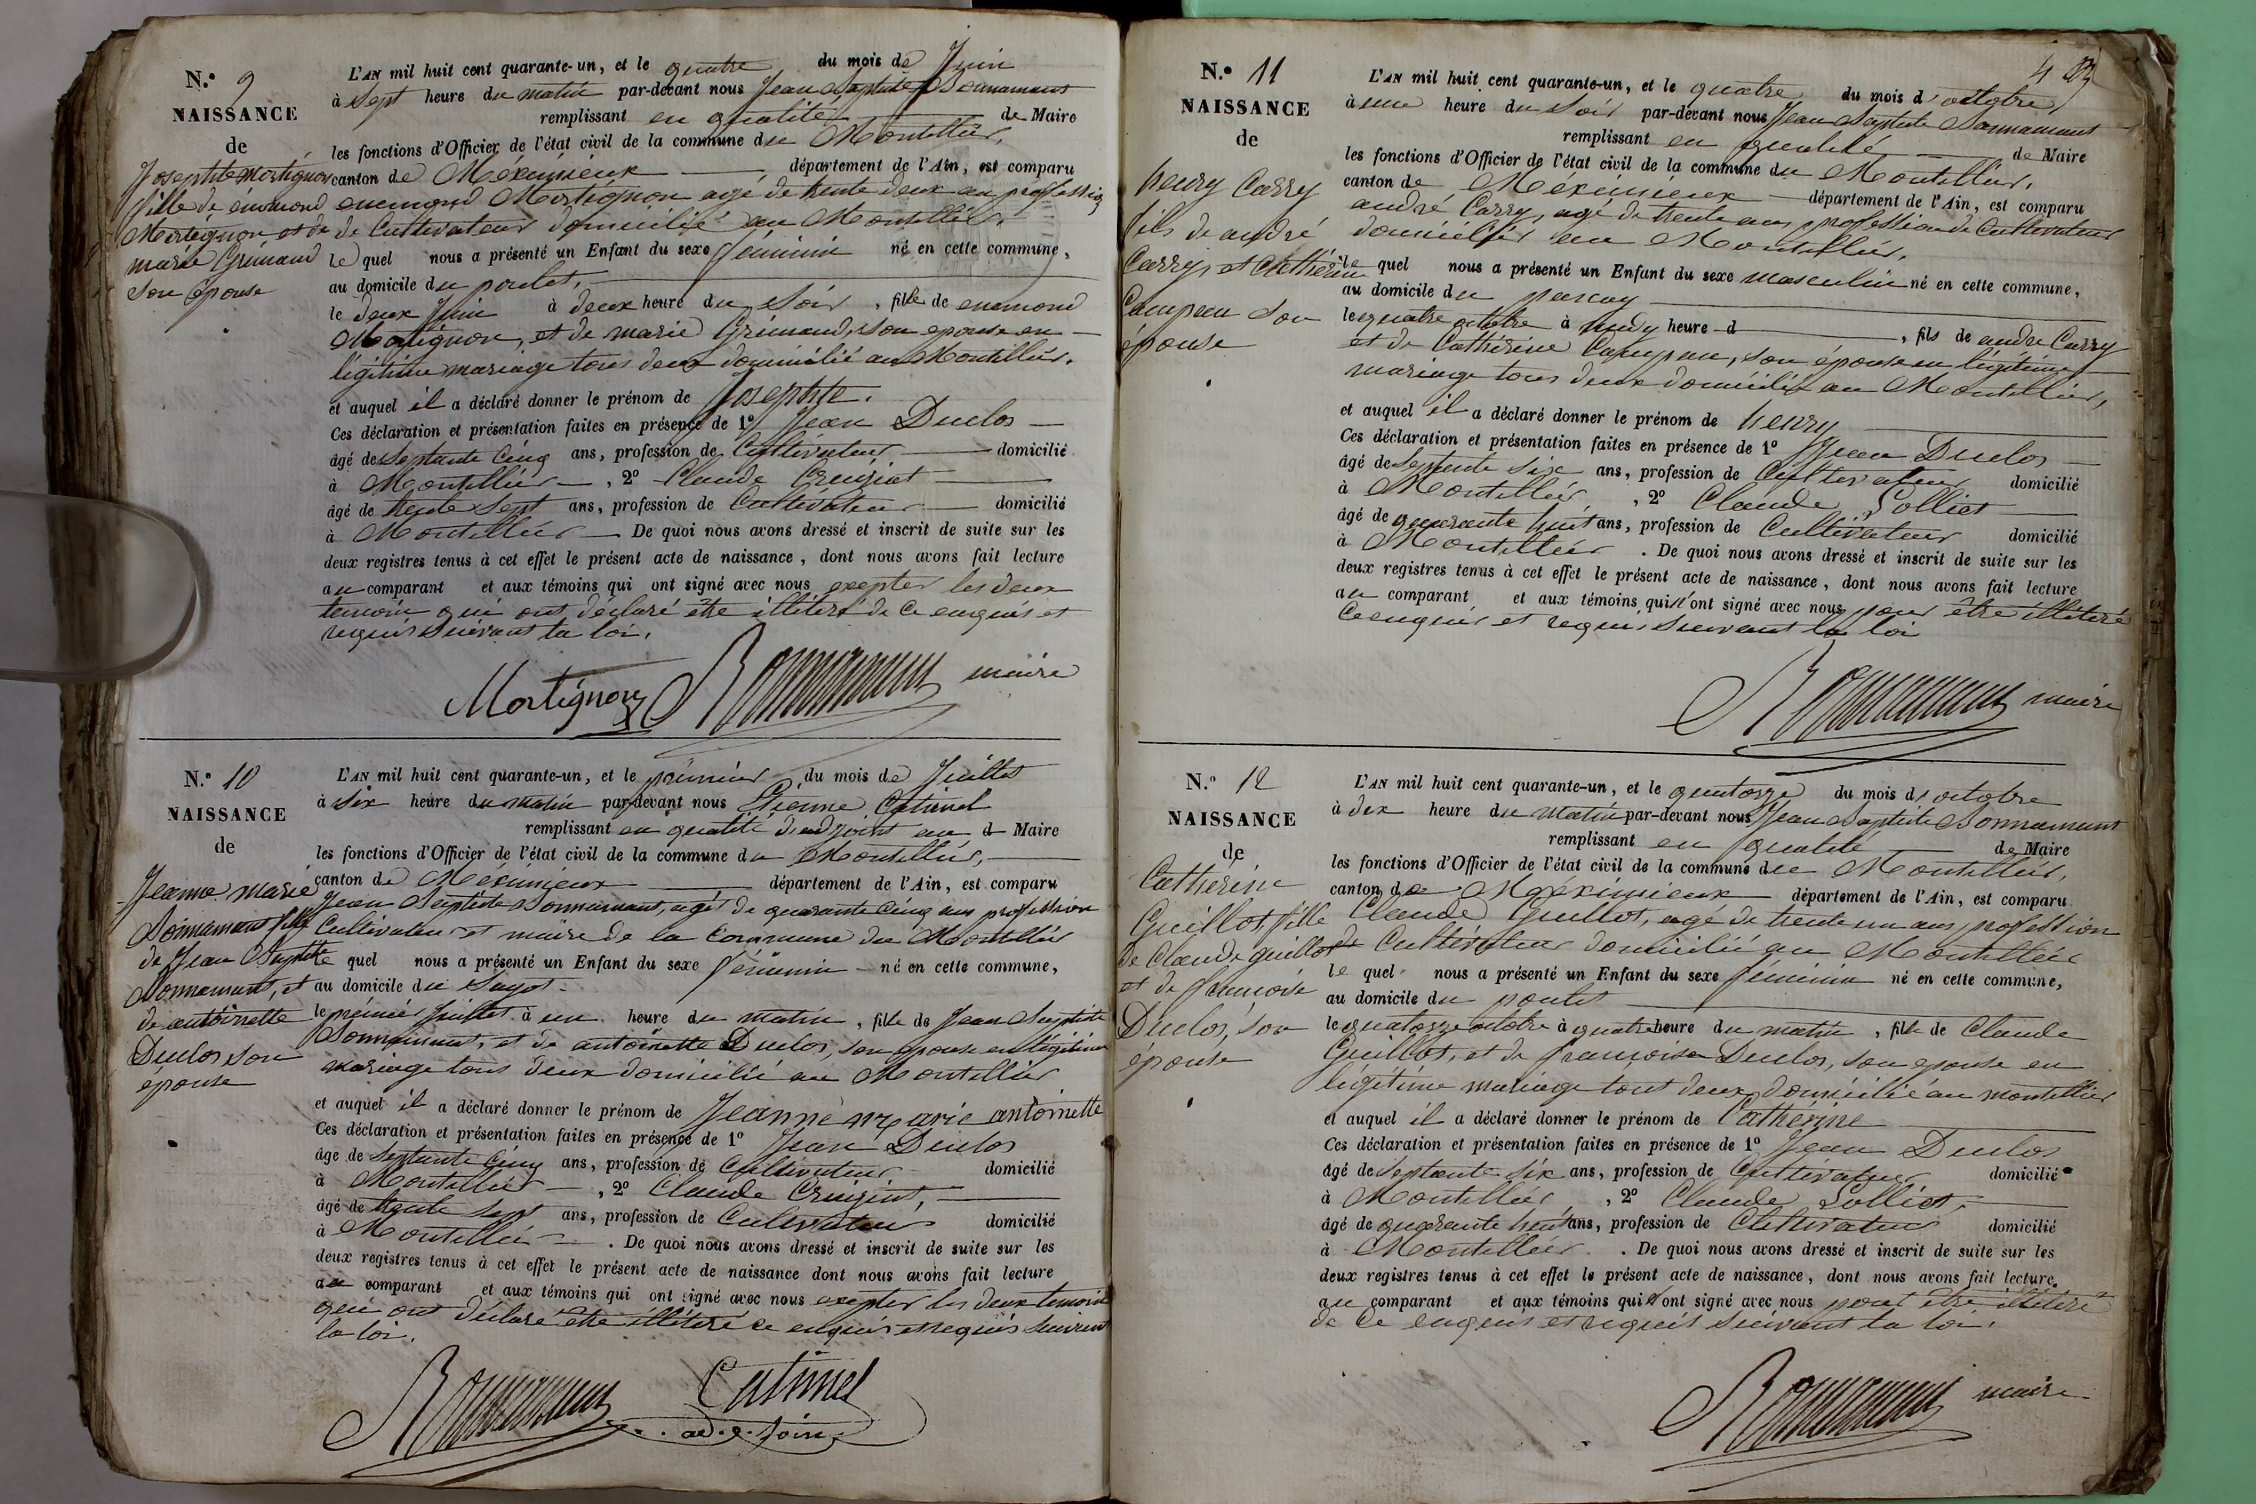 N.° 9
NAISSANCE
de
Josephte Mortignon
fille de énemond
Mortignon et de
marie Grimaud
son épouse
L'AN mil huit cent quarante-un, et le quatre du mois de Juin
à Sept heure du matin par-devant nous Jean Baptiste Bonnamant
remplissant en qualité de Maire
les fonctions d'Officier de l'état civil de la commune du Montellier,
canton de Méximieux département de l'Ain, est comparu
enemond Mortignon agé de trente deux ans profession
de Cultivateur domicilié au Montellier
le quel nous a présenté un Enfant du sexe féminin né en cette commune,
au domicile du poulet,
le deux Juin à deux heure du Soir, fille de enemond
Mortignon, et de marie Grimaud, son epouse en
légitime mariage tous deux domicilié au Montellier.
et auquel il a déclaré donner le prénom de Josephte.
Ces déclaration et présentation faites en présence de 1° Jean Duclos
âgé de Septante Cinq ans, profession de Cultivateur domicilié
à Montellier, 2° Claude Cruiziat
âgé de trente Sept ans, profession de Cultivateur domicilié
à Montellier De quoi nous avons dressé et inscrit de suite sur les
deux registres tenus à cet effet le présent acte de naissance, dont nous avons fait lecture
au comparant et aux témoins qui ont signé avec nous exepter les deux
temoin qui ont déclaré être illitéré de ce enquis et
requis suivant la loi.
Mortignon Bonnamant maire
N.° 10
NAISSANCE
de
Jeanne marie
Bonnamant fille
de Jean Baptiste
Bonnamant, et
de antoinette
Duclos son
épouse
L'AN mil huit cent quarante-un, et le premier du mois de Juillet
à six heure du matin par-devant nous Etienne Catinel
remplissant en qualité d'adjoint au d Maire
les fonctions d'Officier de l'état civil de la commune du Montellier,
canton de Meximieux département de l'Ain, est comparu
Jean Baptiste Bonnamant, agé de quarante Cinq ans profession
Cultivateur et maire de la Commune du Montellier
le quel nous a présenté un Enfant du sexe féminin né en cette commune,
au domicile du
le premier Juillet à un heure du matin, fille de Jean Baptiste
Bonnamant, et de antoinette Duclos, son epouse en legitime
mariage tous deux domicilié au Montellier
et auquel il a déclaré donner le prénom de Jeanne Marie antoinette
Ces déclaration et présentation faites en présence de 1° Jean Duclos
âgé de Septante Cinq ans, profession de Cultivateur domicilié
à Montellier, 2° Claude Cruiziat,
âgé de trente Sept ans, profession de Cultivateur domicilié
à Montellier. De quoi nous avons dressé et inscrit de suite sur les
deux registres tenus à cet effet le présent acte de naissance dont nous avons fait lecture
au comparant et aux témoins qui ont signé avec nous exepter les deux temoin
qui ont déclaré être illitéré ce enquis et requis Suivant
la loi.
Bonnamant Catinel
adjoint
4
N.° 11
NAISSANCE
de
henry Carry
fils de andré
Carry, et Cathérine
Campan son
épouse
L'AN mil huit cent quarante-un, et le quatre du mois d'octobre
à une heure du Soir par-devant nous Jean Baptiste Bonnamant
remplissant en qualité de Maire
les fonctions d'Officier de l'état civil de la commune du Montellier,
canton de Méximieux département de l'Ain, est comparu
andré Carry, agé de trente ans, profession de Cultivateur
domicilié au Montellier,
le quel nous a présenté un Enfant du sexe masculin né en cette commune,
au domicile du
le quatre octobre à midy heure d , fils de andré Carry
et de Cathérine Campan, son épouse en légitime
mariage tous deux domicilié au Montellier,
et auquel il a déclaré donner le prénom de henry
Ces déclaration et présentation faites en présence de 1° Jean Duclos
âgé de Septente Six ans, profession de Cultivateur domicilié
à Montellier, 2° Claude Solliet
âgé de quarante huit ans, profession de Cultivateur domicilié
à Montellier. De quoi nous avons dressé et inscrit de suite sur les
deux registres tenus à cet effet le présent acte de naissance, dont nous avons fait lecture
au comparant et aux témoins qui n'ont signé avec nous pour être illitéré
ce enquis et requis Suivant la loi
Bonnamant maire
N.° 12
NAISSANCE
de
Catherine
Guillot, fille
de Claude guillot
et de françoise
Duclos, son
épouse
L'AN mil huit cent quarante-un, et le quatorze du mois d'octobre
à dix heure du matin par-devant nous Jean Baptiste Bonnamant
remplissant en qualité de Maire
les fonctions d'Officier de l'état civil de la commune du Montellier,
canton de Méximieux département de l'Ain, est comparu
Claude Guillot, agé de trente un ans, profession
de Cultivateur domicilié au Montellier
le quel nous a présenté un Enfant du sexe féminin né en cette commune,
au domicile du poulet
le quatorze octobre à quatre heure du matin, fille de Claude
Guillot, et de françoise Duclos, son epouse en
légitime mariage tout deux domicilié au montellier
et auquel il a déclaré donner le prénom de Cathérine
Ces déclaration et présentation faites en présence de 1° Jean Duclos
âgé de Septante Six ans, profession de Cultivateur domicilié
à Montellier, 2° Claude Solliet,
âgé de quarante huit ans, profession de Cultivateur domicilié
à Montellier. De quoi nous avons dressé et inscrit de suite sur les
deux registres tenus à cet effet le présent acte de naissance, dont nous avons fait lecture
au comparant et aux témoins qui n'ont signé avec nous pour être illitéré
de ce enquis et requis suivant la loi.
Bonnamant maire